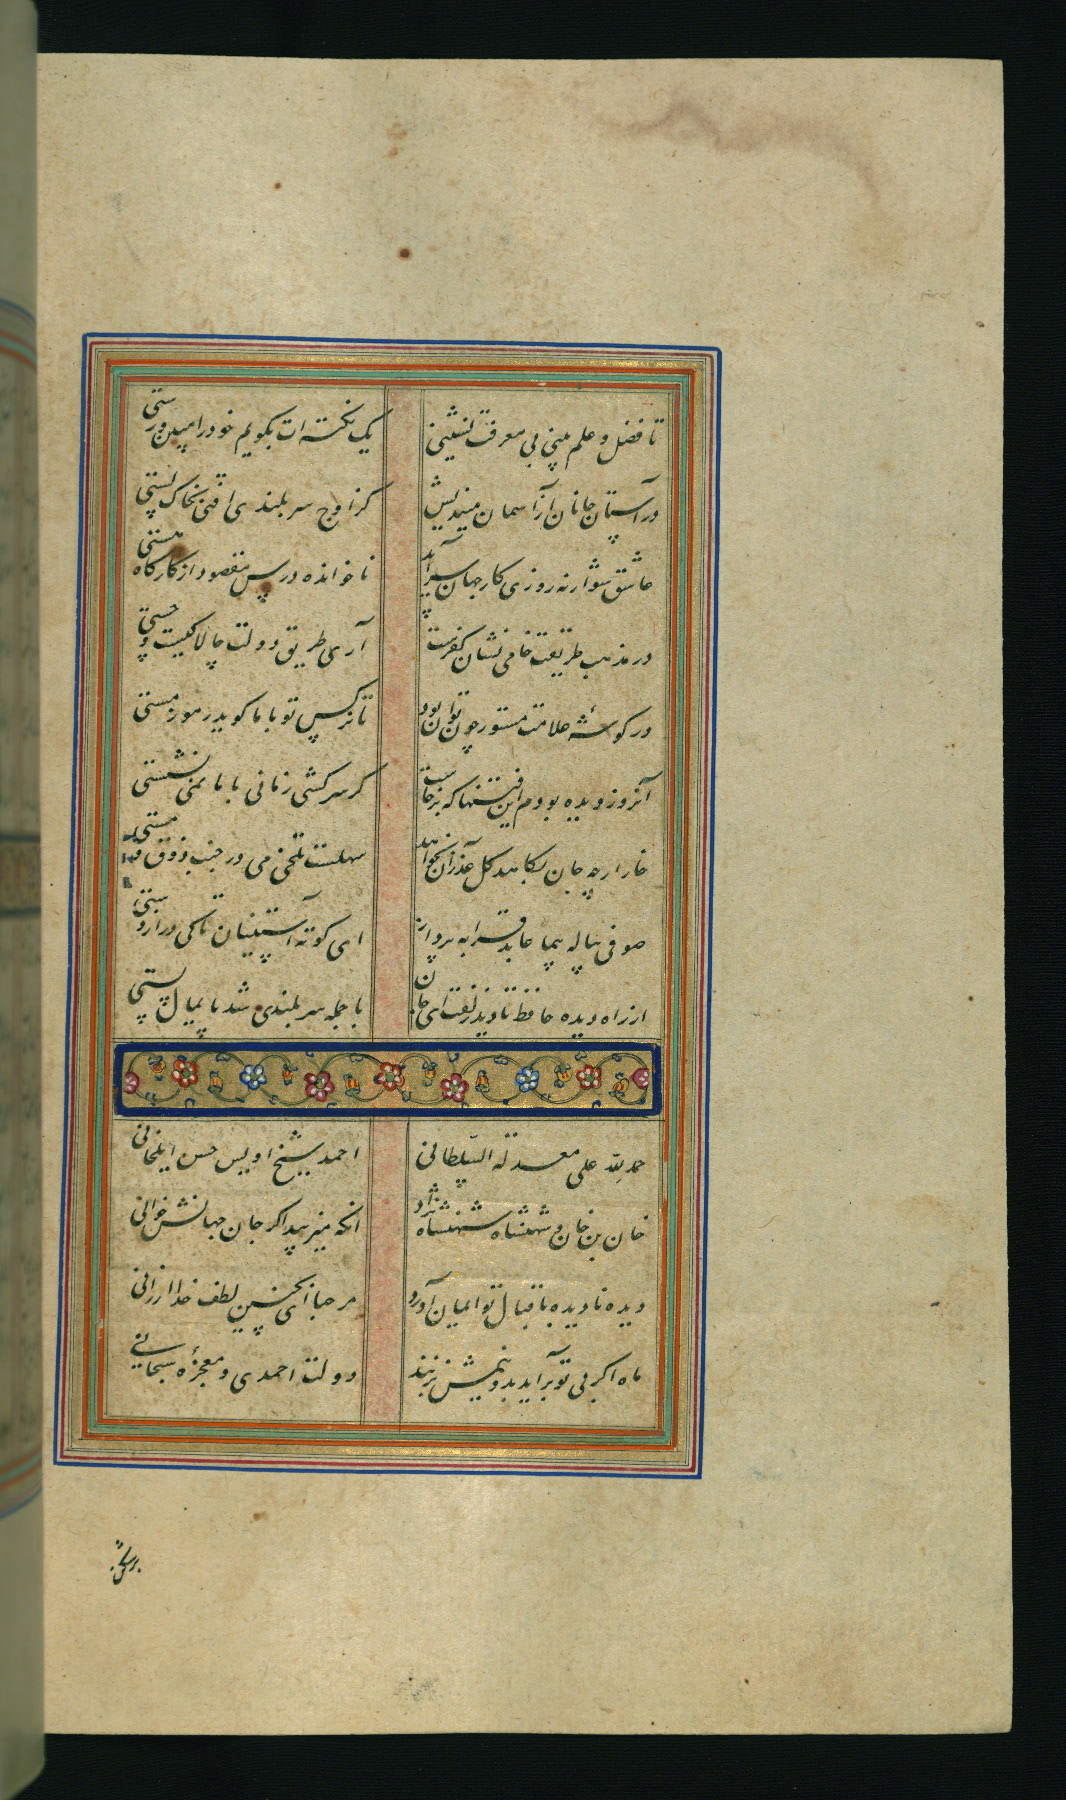 تا فضل و علم بینی بی معرفت نشینی
یک نکته ات بگویم خود را مبین و رستی
در آستان جانان از آسمان میندیش
کز اوج سربلندی افتی بخاک پستی
عاشق شو ار نه روزی کار جهان سرآید
ناخوانده درس مقصود از کارگاه هستی
در مذهب طریقت خامی نشان کفرست
آری طریق دولت چالاکیست و چستی
در گوشهٔ علامت مستور چون توان بود
تا نرگس تو با ما گوید رموز مستی
آنروز دیده بودم این فتنها که برخاست
کز سرکشی زمانی با ما نمی نشستی
خار ارچه جان بکاهد گل عذر آن بخواهد
سهلست تلخی می در جنب ذوق مستی
صوفی پیاله پیما عابد قرابه پرداز
ای کوته آستینان تا کی دراز دستی
از راه دیده حافظ تا دید زلفت ای جان
با جمله سربلندی شد پایمال پستی
حمد لله علی معدلة السلطانی
احمد شیخ اویس حسن ایلخانی
خان بن خان و شهنشاه شهنشاه نژاد
آنکه میزیبد اگر جان جهانش خوانی
دیده نادیده باقبال تو ایمان آورد
مرحبا ای بچنین لطف خدا ارزانی
ماه اگر بی تو برآید بدو نیمش بزنند
دولت احمدی و معجزهٔ سبحانی